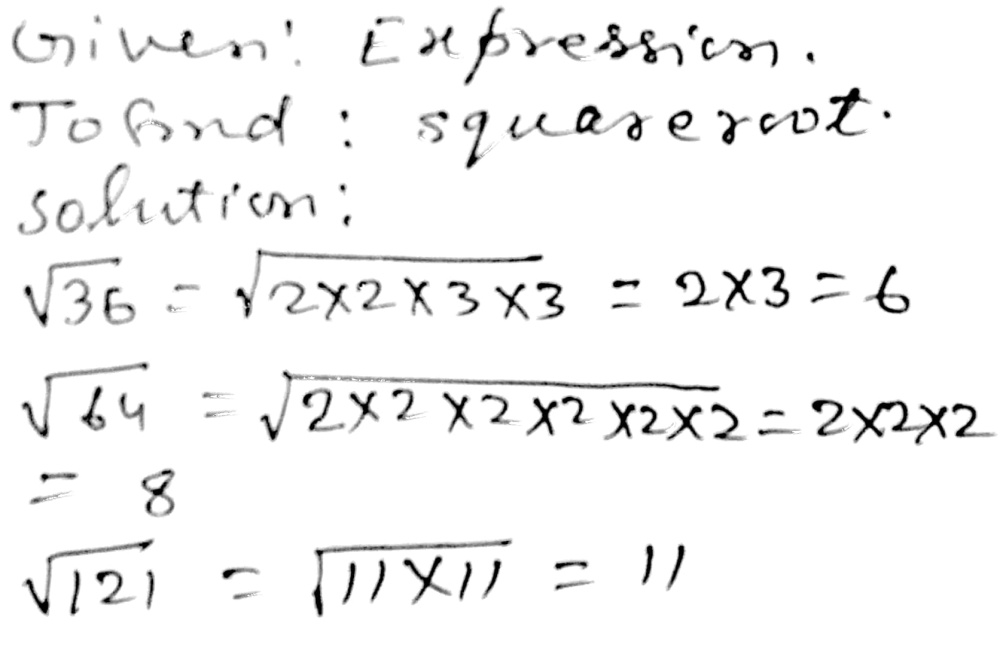 Given: Expression.
To find : squareroot.
Solution:
√36 = √2×2×3×3 = 2×3 = 6
√64 = √2×2×2×2×2×2 = 2×2×2
= 8
√121 = √11×11 = 11